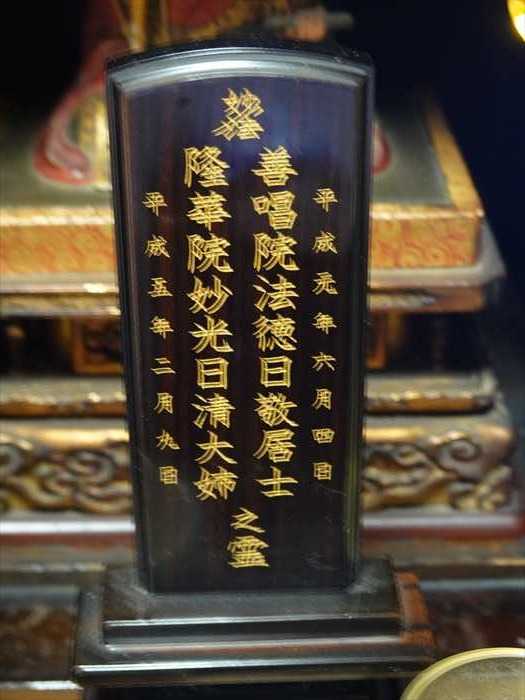 妙法
平成元年六月四日
善唱院法徳日敬居士
隆華院妙光日清大姉
之霊
平成五年二月九日